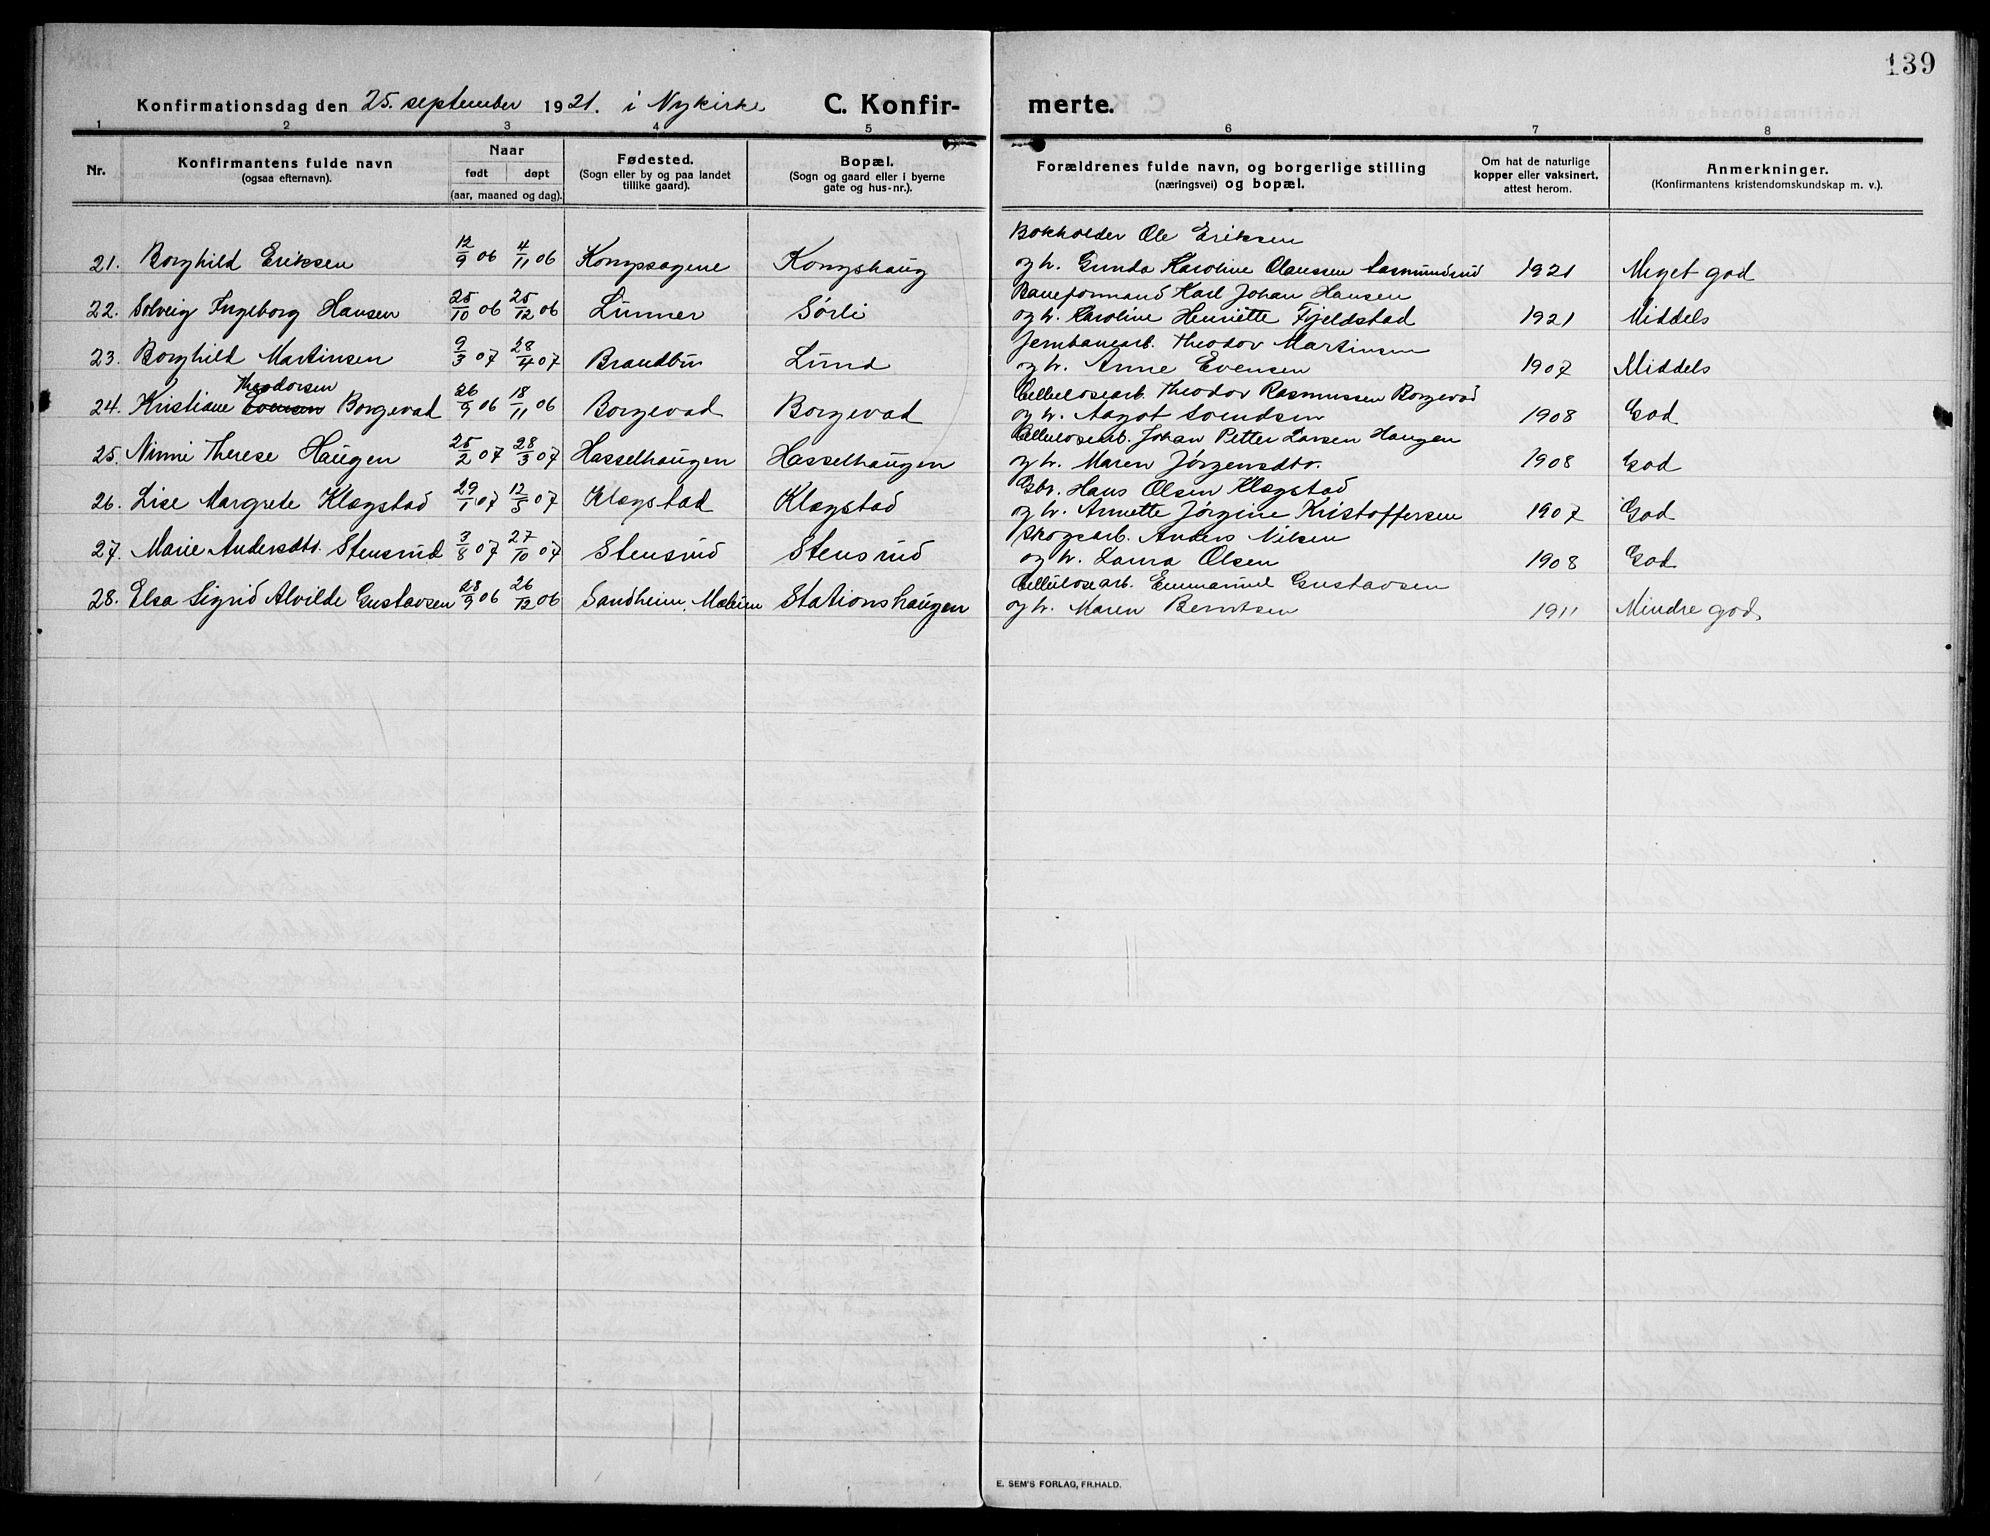 139
Konfirmationsdag den 25. september 1921. i Nykirke C. Konfirmerte.
1 2 3 4 5 6 7 8
Nr. Konfirmantens fulde navn (ogsaa efternavn). Naar født døpt (aar, maaned og dag). Fødested. (Sogn eller by og paa landet tillike gaard). Bopæl. (Sogn og gaard eller i byerne gate og hus-nr.). Forældrenes fulde navn, og borgerlige stilling (næringsvei) og bopæl. Om hat de naturlige kopper eller vaksinert, attest herom. Anmerkninger. (Konfirmantens kristendomskundskap m. v.).
Bokholder Ole Eriksen
21. Borghild Eriksen 12/9 06 4/11 06 Kongssagene Kongshaug og h. Gunda Karoline Olaussen Aasmundrud 1921 Meget god
Baneformand Karl Johan Hansen
22. Solveig Ingeborg Hansen 25/10 06 25/12 06 Lunner Sørli og h. Karoline Henriette Fjeldstad 1921 Middels
Jernbanearb. Theodor Martinsen
23. Borghild Martinsen 9/3 07 28/4 07 Brandbu Lund og h. Anne Evensen 1907 Middels
Theodorsen Cellulosearb. Theodor Rasmussen Borgevad
24. Kristiane Evensen Borgevad 26/9 06 18/11 06 Borgevad Borgevad og h. Aagot Svendsen 1908 God
Cellulosearb. Johan Petter Larsen Haugen
25. Ninni Therese Haugen 25/2 07 28/3 07 Hasselhaugen Hasselhaugen og h. Maren Jørgensdtr. 1908 God
Gbr. Hans Olsen Klægstad
26. Lise Margrete Klægstad 29/1 07 12/5 07 Klægstad Klægstad og h. Annette Jørgine Kristoffersen 1907 God
Skogsarb. Anders Nilsen
27. Marie Andersdtr. Stensrud 3/8 07 27/10 07 Stensrud Stensrud og h. Laura Olsen 1908 God
Cellulosearb. Emmanuel Gustavsen
28. Elsa Sigrid Alvilde Gustavsen 28/9 06 26/12 06 Sandheim, Stationshaugen og h. Maren Berntsen 1911 Mindre god.
E. SEM'S FORLAG, FR.HALD.